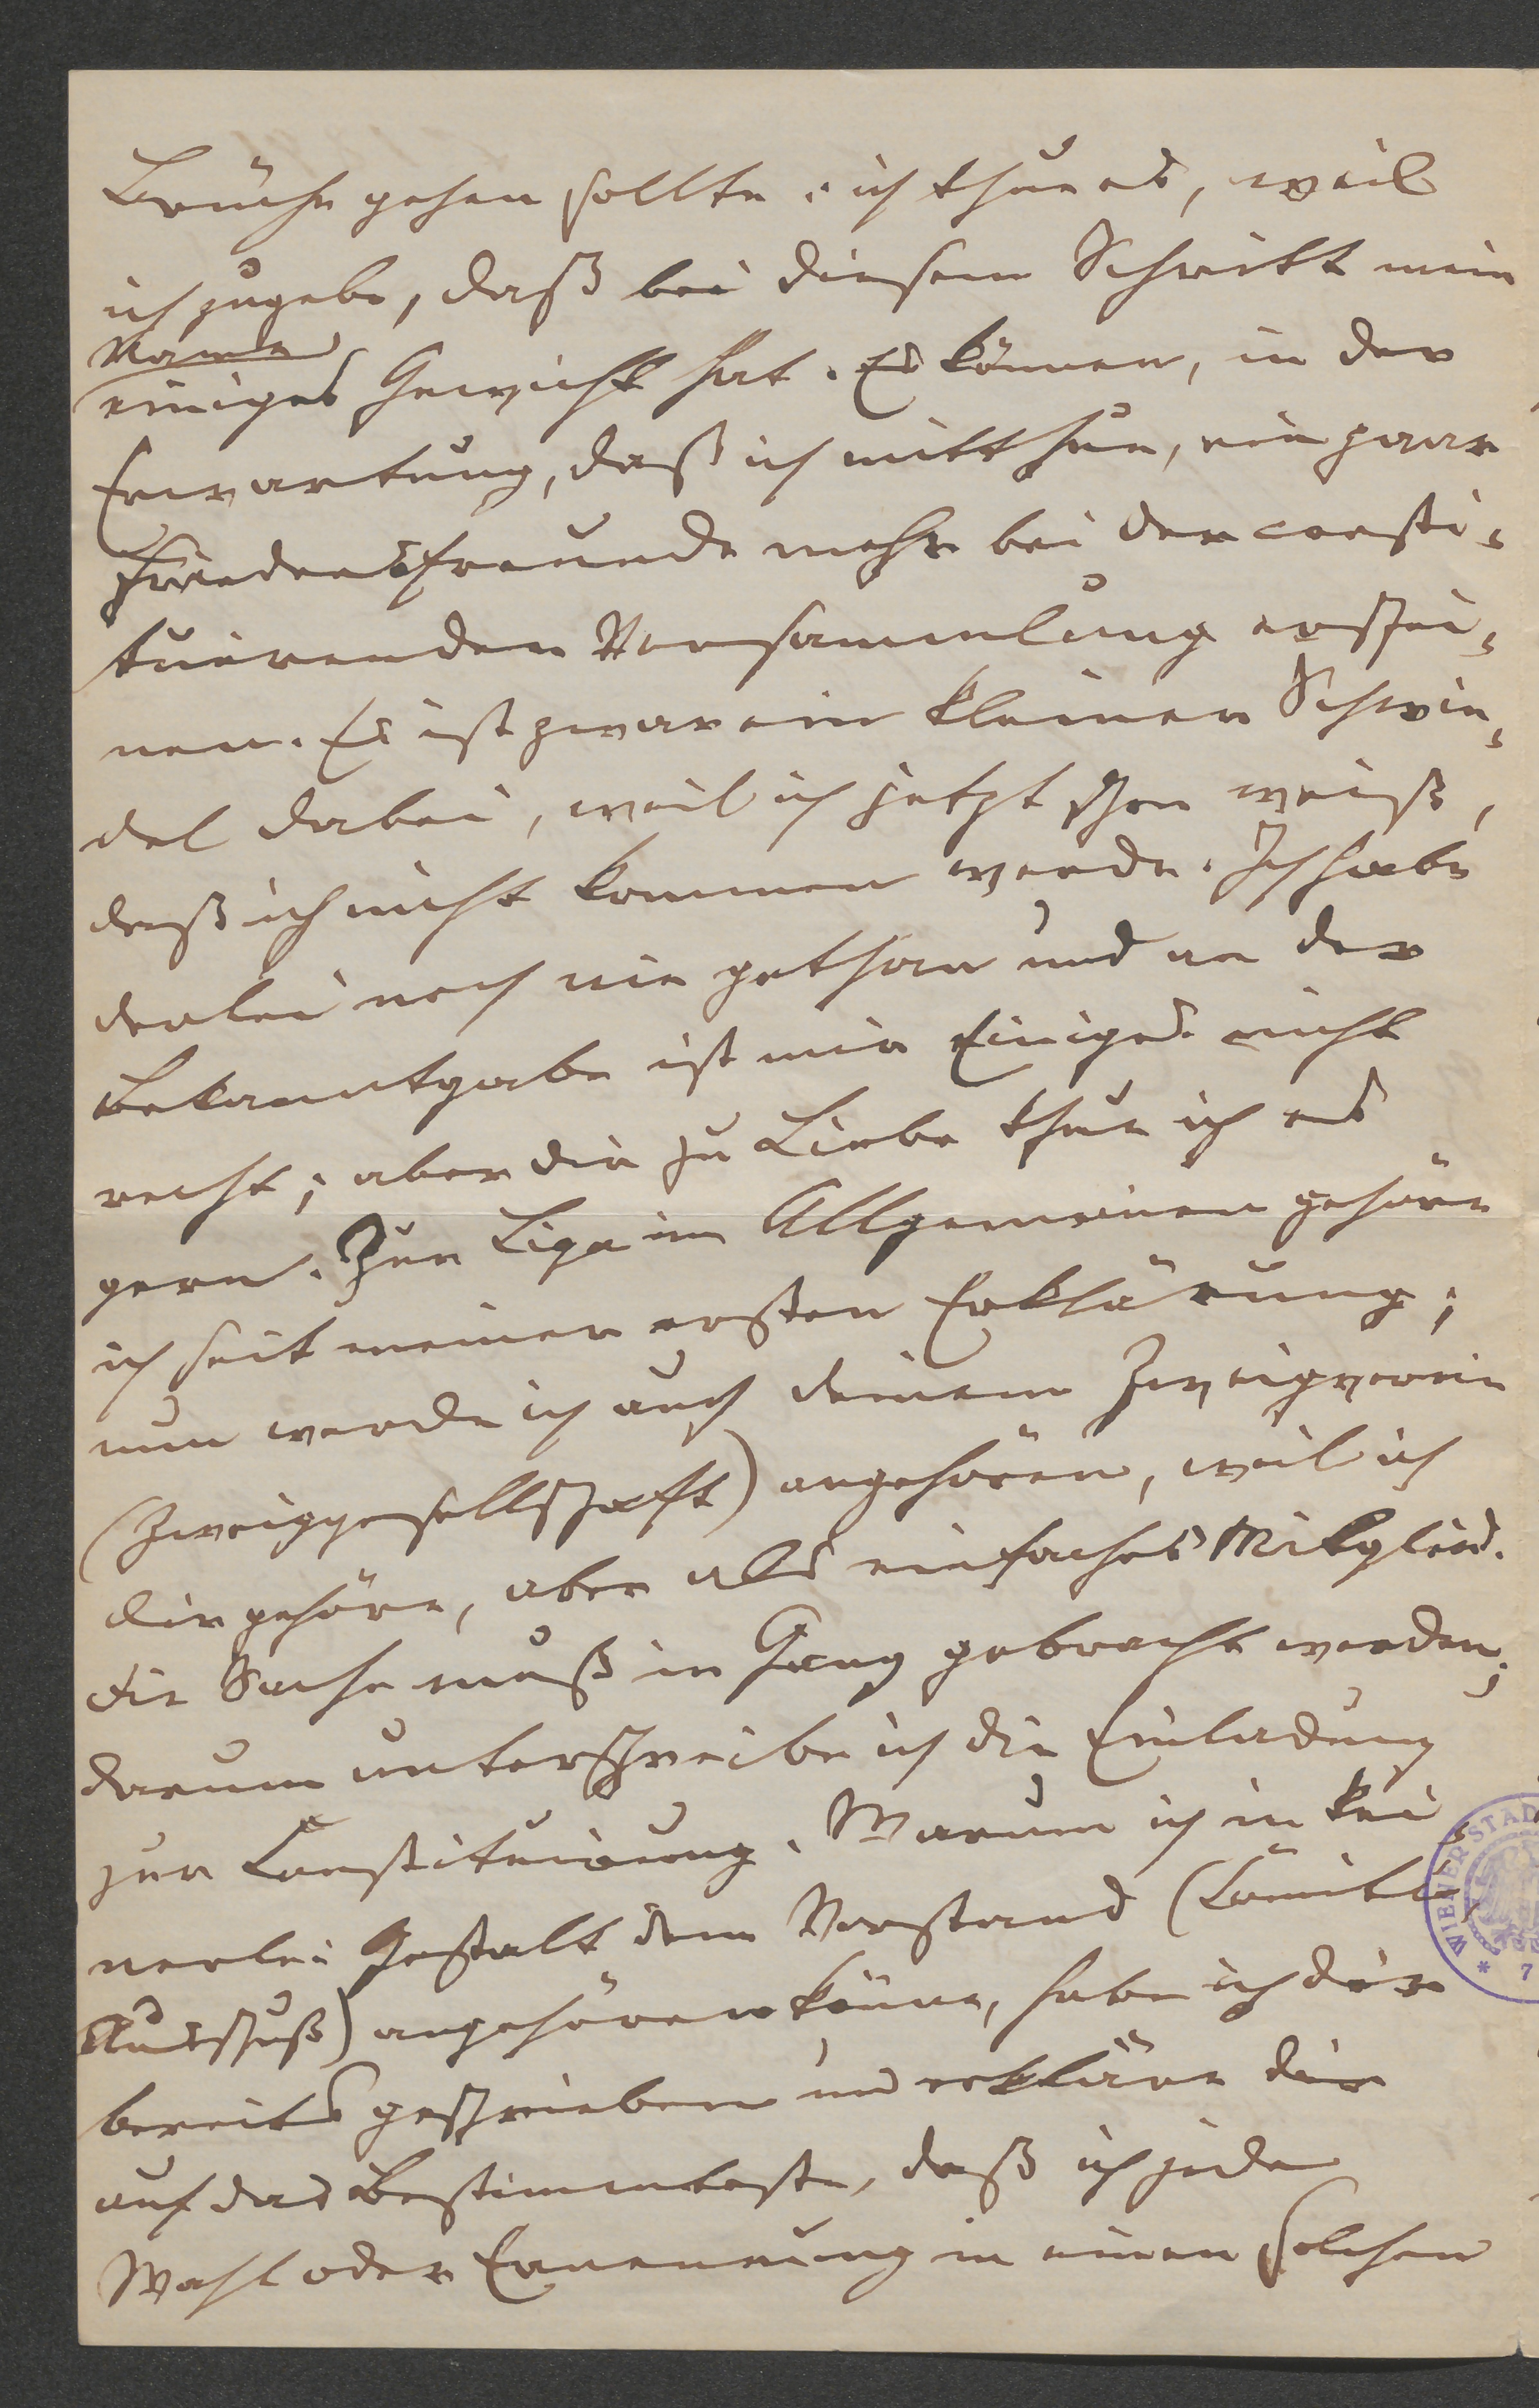 Brüche gehen sollte: ich thue es, weil
ich zugebe, daß bei diesem Schritt mein
Name
einiges Gewicht hat. Es können, in der
Erwartung, daß ich mitthue, ein paar
Friedensfreunde mehr bei der consti-
tuirenden Versammlung erschei-
nen. Es ist zwar ein kleiner Schwin-
del dabei, weil ich jetzt schon weiß,
daß ich nicht kommen werde. Ich habe
derlei noch nie gethan und an der
Bekanntgabe ist mir Einiges nicht
recht; aber dir zu Liebe thue ich es
gern. Zur Liga im Allgemeinen gehöre
ich seit meiner ersten Erklärung;
nun werde ich auch deinem Zweigverein
(Zweiggesellschaft) angehören, weil ich
dir gehöre, aber als einfaches Mitglied.
Die Sache muß in Gang gebracht werden;
darum unterschreibe ich die Einladung
zur Constituirung. Warum ich in kei-
nerlei Gestalt dem Vorstand (Comité,
Ausschuß) angehören könne, habe ich dir
bereits geschrieben und erkläre dir
auf das Bestimmteste, daß ich jede
Wahl oder Ernennung in einen solchen
WIENER STAD
* 7